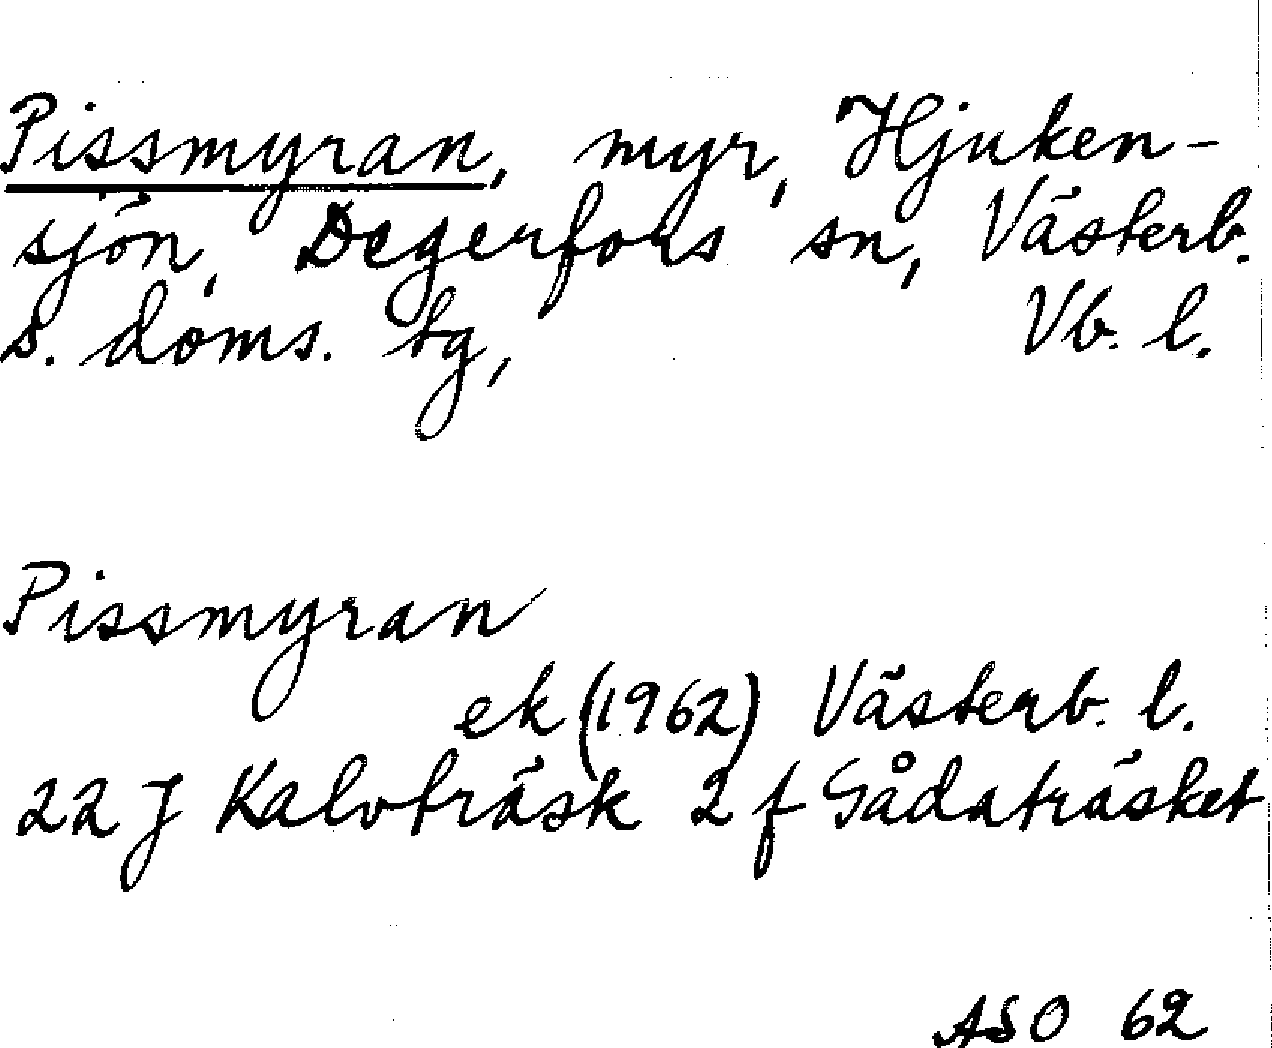 Pissmyran, myr, Hjuken-
sjön, Degerfors sn, Västerb.
s. doms. tg, Vb. l.
Pissmyran
ek (1962) Västerb. l.
22 J Kalvträsk 2 f Gådaträsket
ASO 62